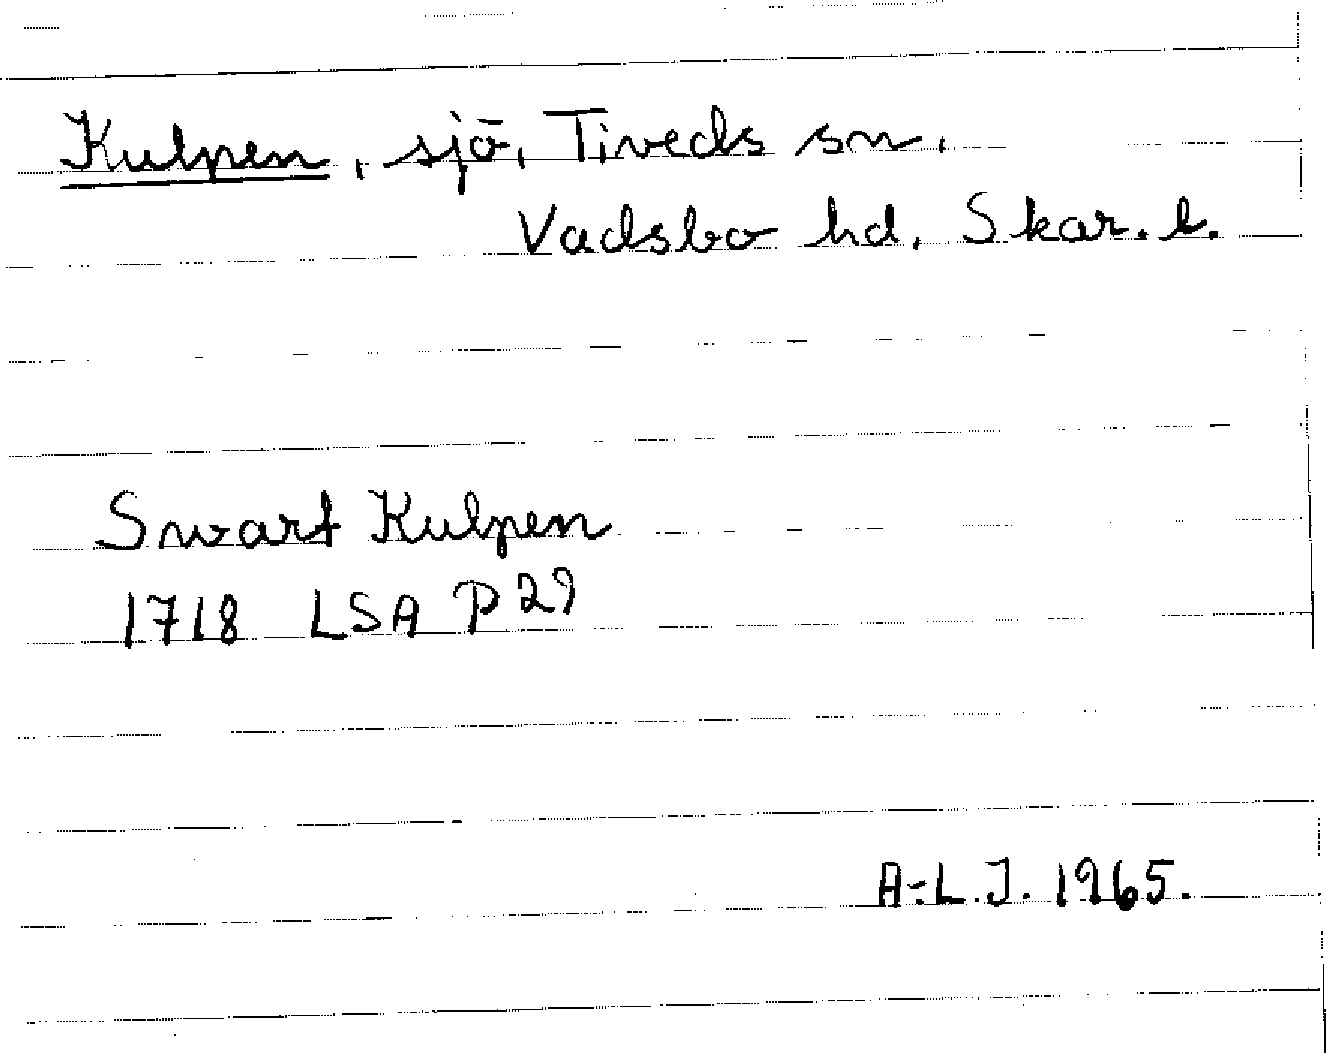 Kulpen, sjö, Tiveds sn.
Vadsbo hd, Skar. l.
Swart Kulpen
1718 LSA P 29
A-L.J. 1965.